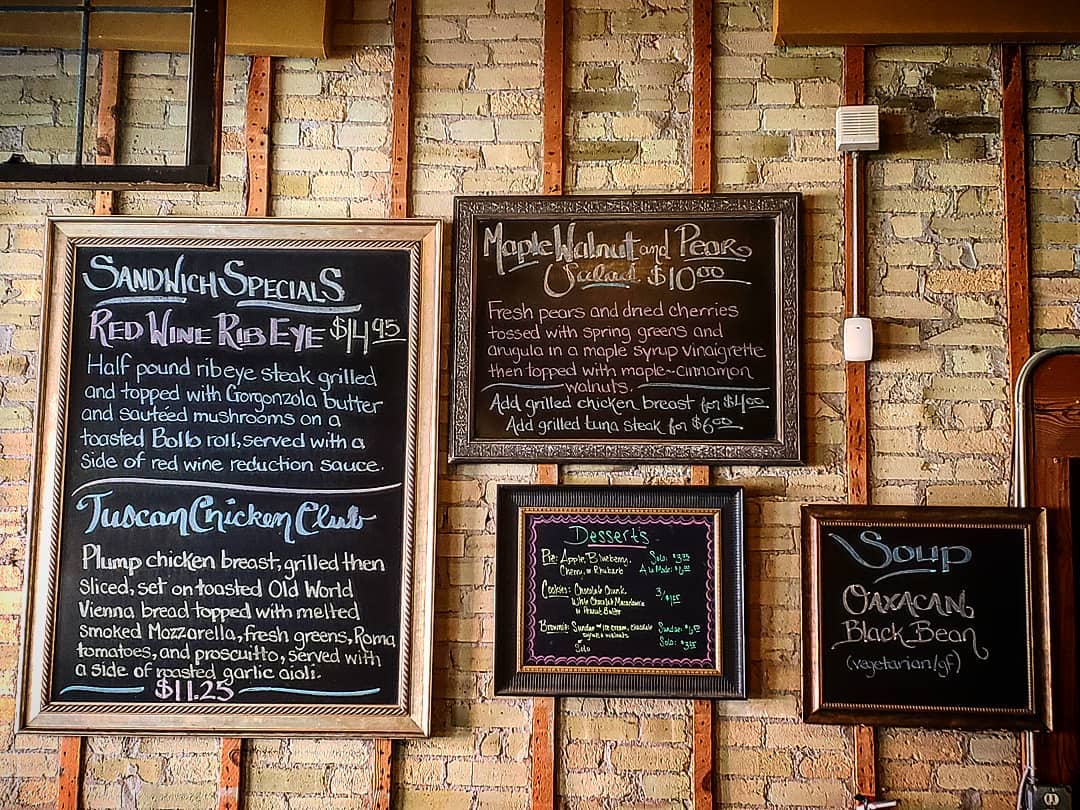 SANDWICH SPECIALS
RED WINE RIB EYE $14.95
Half pound ribeye steak grilled
and topped with Gorgonzola butter
and sautéed mushrooms on a
toasted Bollo roll, served with a
side of red wine reduction sauce.
Tuscan Chicken Club
Plump chicken breast, grilled then
sliced, set on toasted Old World
Vienna bread topped with melted
smoked Mozzarella, fresh greens, Roma
tomatoes, and proscuitto, served with
a side of roasted garlic aioli.
$11.25
Maple Walnut and Pear
Salad $10.00
Fresh pears and dried cherries
tossed with spring greens and
arugula in a maple syrup vinaigrette
then topped with maple-cinnamon
walnuts.
Add grilled chicken breast for $4.00
Add grilled tuna steak for $6.00
Desserts
Pie: Apple, Blueberry, Solo:
Cherry, or Rhubarb A La Mode:
Cookies: Chocolate Chunk
White Chocolate Macadamia
or Peanut Butter
Brownie: Sundae ice cream, chocolate Sundae:
walnuts
Solo Solo:
Soup
OAXACAN
Black Bean
(vegetarian/gf)